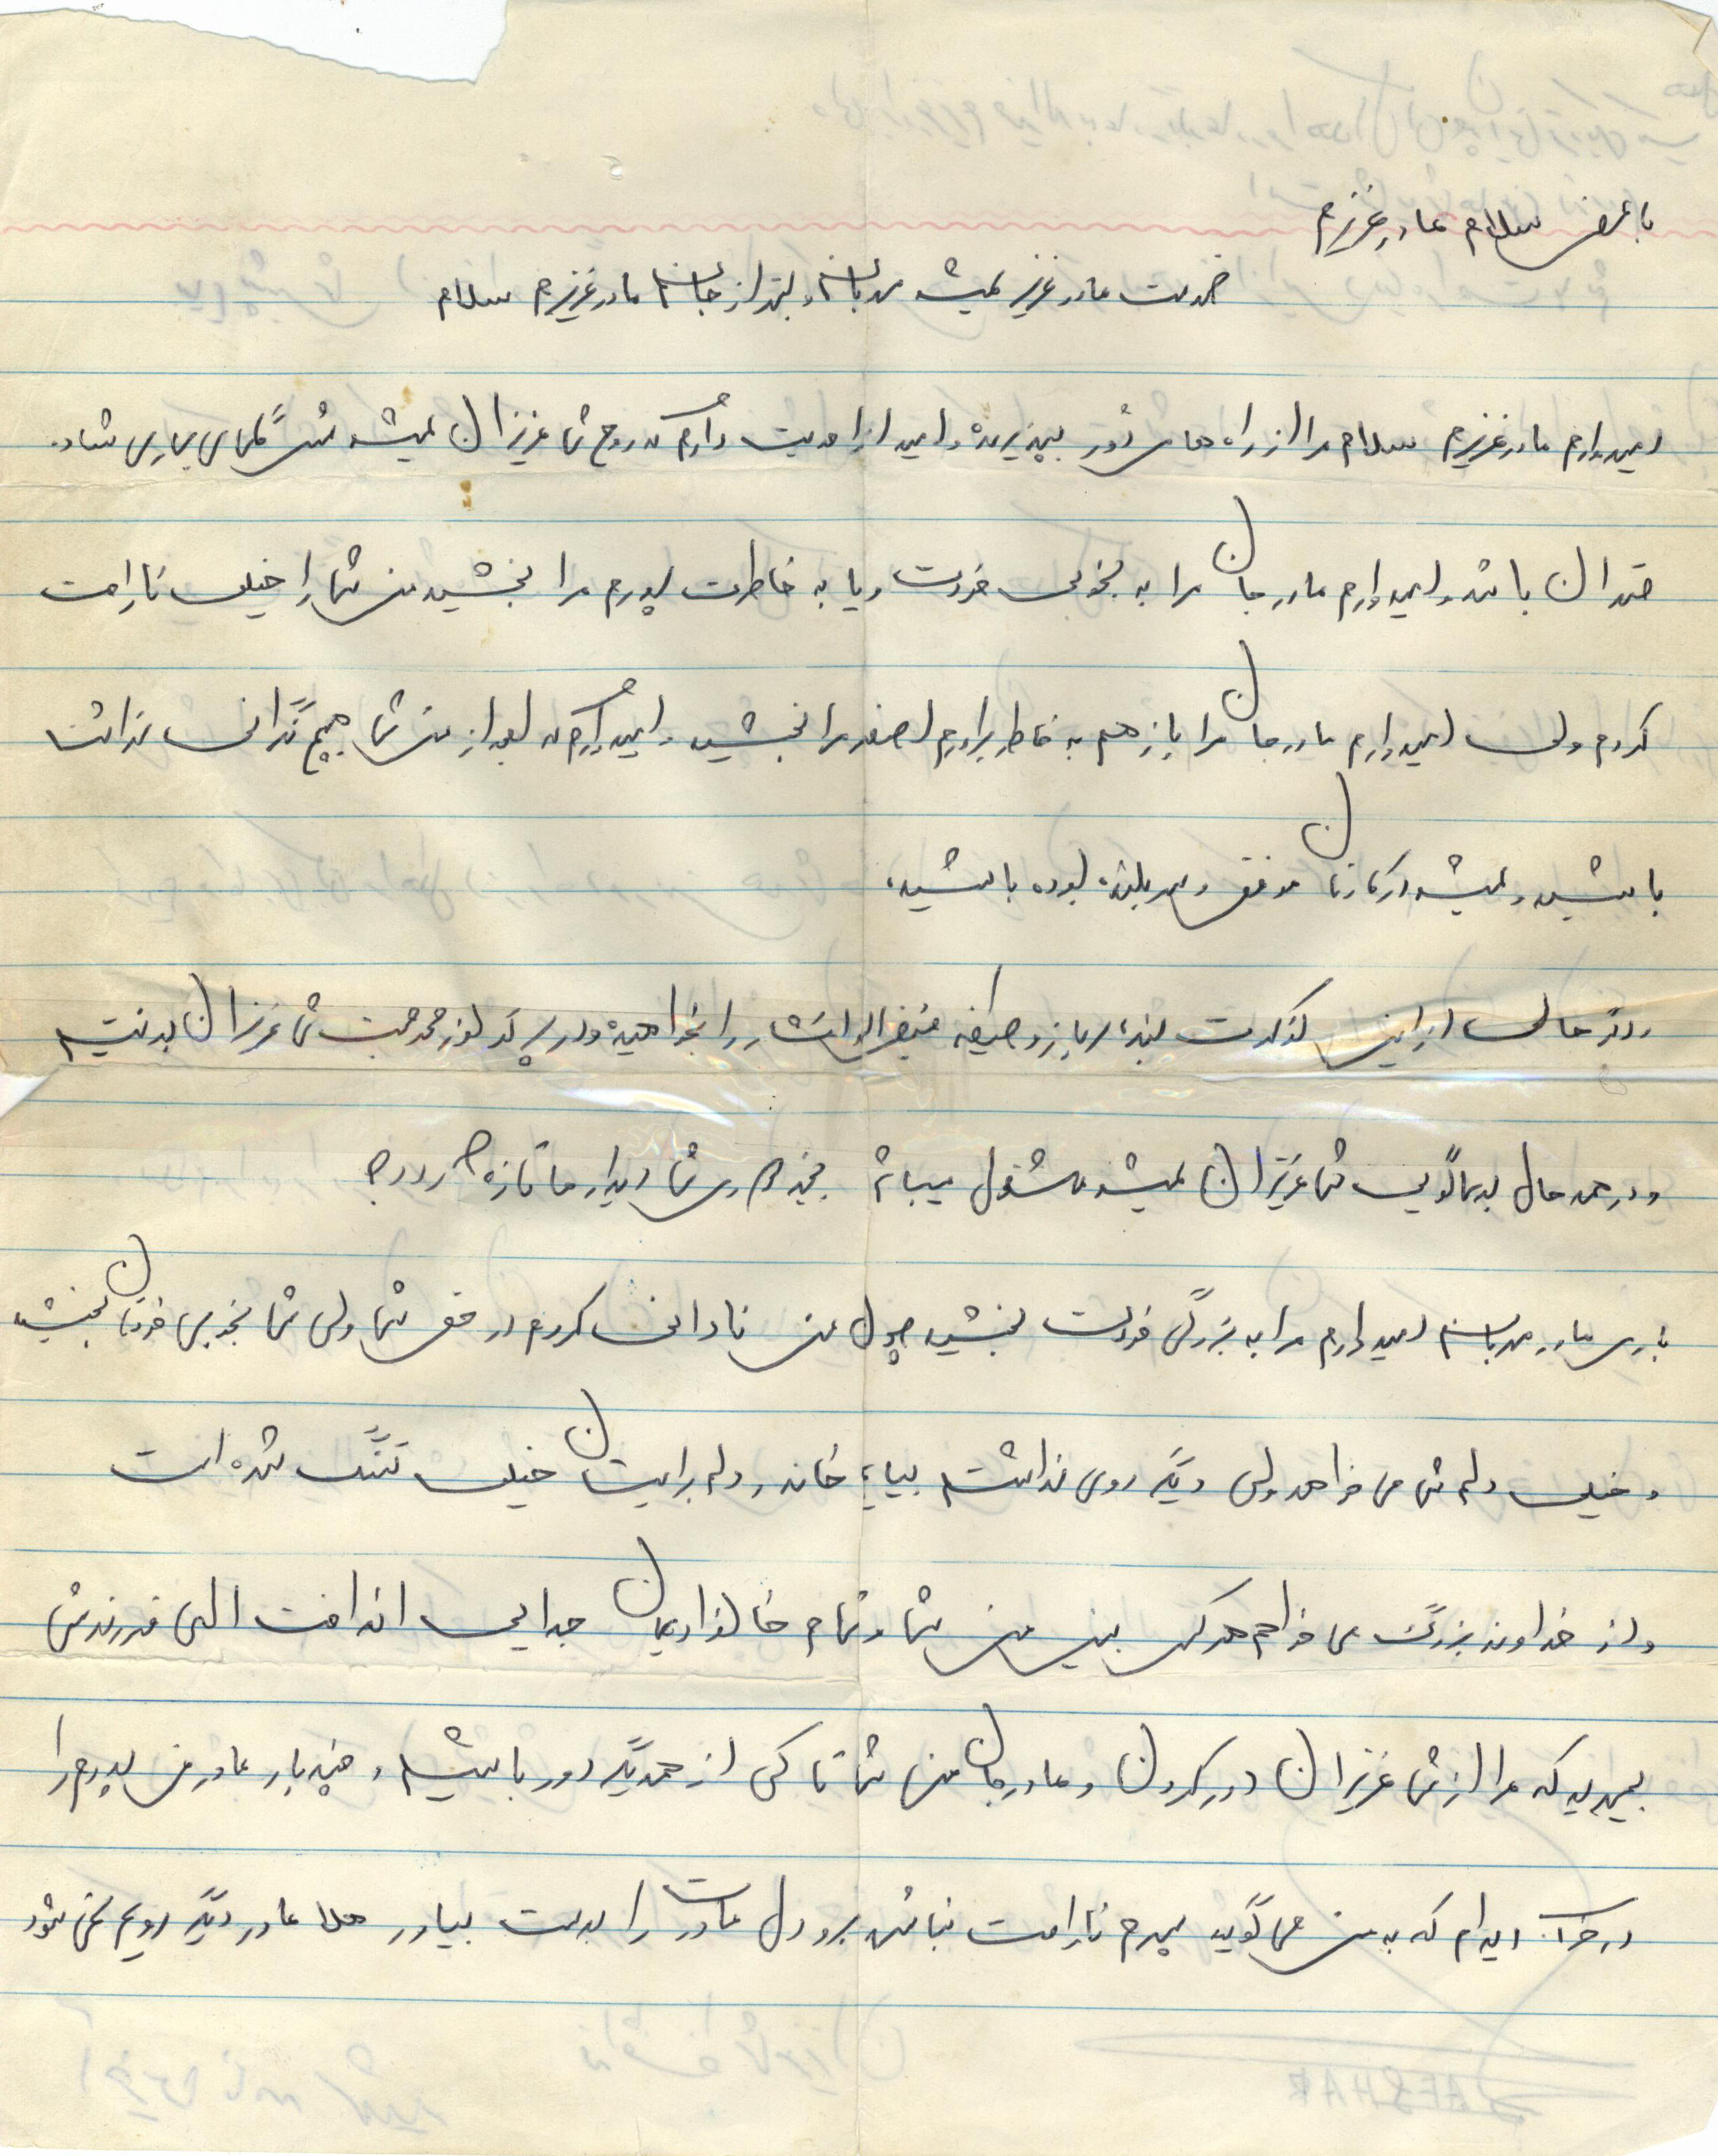 با عرض سلام مادر عزیزم
خدمت مادر عزیز همیشه مهربانم و بهتر از جانم مادر عزیزم سلام
امیدوارم مادر عزیزم سلام مرا از راه های دور بپذیرید و امید از احدیت دارم که روح شما عزیزان همیشه مثل گلهای بهاری شاد.
خندان باشد و امیدوارم مادر جان مرا به بخوبی خودت و یا به خاطرت پدرم مرا بخشید من شما را خیلی ناراحت
کردم ولی امیدوارم مادر جان مرا باز هم به خاطر برادرم اصغر مرا بخشید و امیدوارم که بعد از من شما هیچ نگرانی نداشتا
باشید و همیشه در کارتان موفق و سربلند بوده باشید،
و در حالی از این کوکدت بنده سرباز وظیفه را بخواهید ولد پد محبت شما عزیزان بد نیستم
و در همه حال بدعاگویی شما عزیزان همیشه مشغول میباشم بخیر شما دیدار ما تازه
باری مادر مهربانم امیدوارم مرا به بزرگی خودت بخشید چون من نادانی کردم در حق شما ولی شما بخوبی خودتان بخشید
و خیلی دلم شما می خواهد ولی دیگر روی نداشتم بیایم خانه و دلم برایتان خیلی تنگ شده است
و از خداوند بزرگ می خواهم هر کس بین من شما و تمام خانوادیمان جدایی انداخت الهی فرزندش
بمیرید که مرا از شما عزیزان دور کردن و مادر جان من شما تا کی از همدیگر دور باشیم و چند بار مادر من پدرم را
در خواب دیدام که به من می گوید پسرم ناراحت نباش برو دل مادرت را بدست بیاور حلا مادر دیگر رویم نمی شود